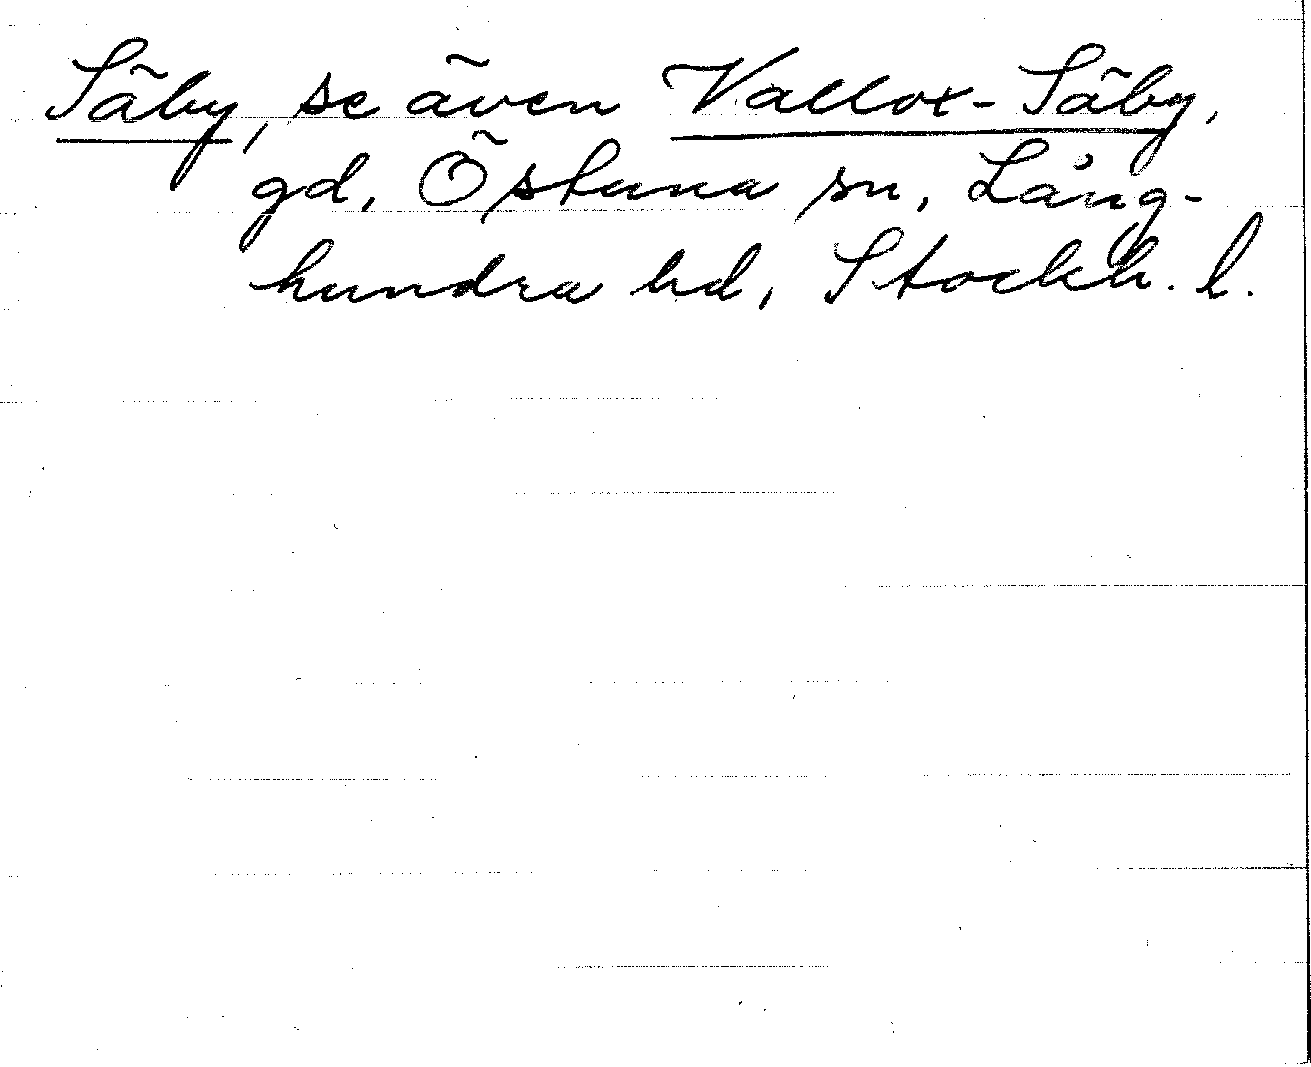 Säby, se även Vallox-Säby,
gd, Östuna sn, Lång-
hundra hd, Stockh. l.